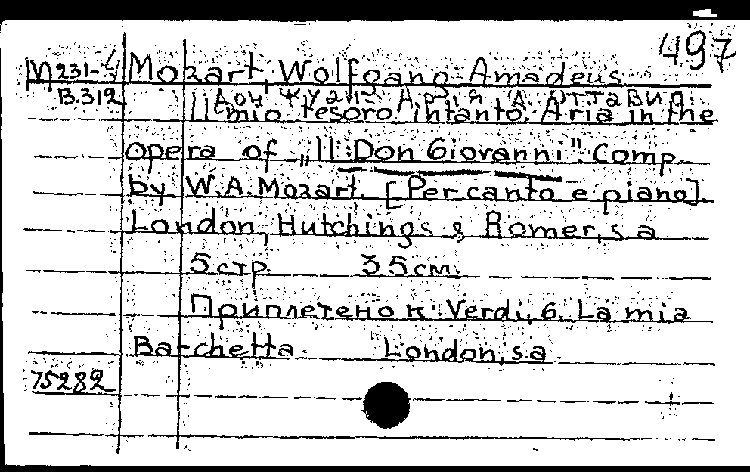 497
М 231-4 Mozart, Wolfgang-Amadeus
В.312 Дон Жуан. Ария Д. Оттавио
Il mio tesoro intanto. Aria in the
opera of „Il Don Giovanni". Comp.
by W.A. Mozart. [Per canto e piano].
London, Hutchings & Romer, s a
5 стр. 35 см.
Приплетено к: Verdi, G. La mia
Barchetta. London, s a
75282